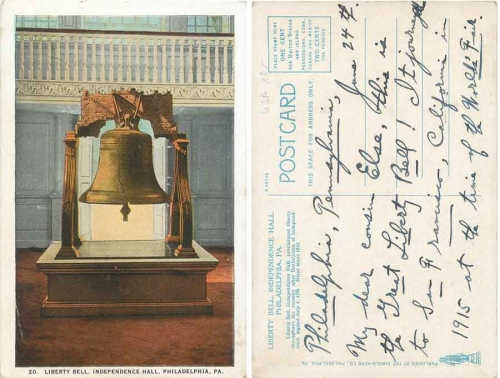 20. LIBERTY BELL, INDEPENDENCE HALL, PHILADELPHIA, PA.
PLACE STAMP HERE
ONE CENT
FOR UNITED STATES
AND ISLAND
POSSESSIONS, CUBA,
CANADA AND MEXICO
TWO CENTS
FOR FOREIGN
POST CARD
THIS SPACE FOR ADDRESS ONLY.
LIBERTY BELL, INDEPENDENCE HALL,
PHILADELPHIA, PA.
Liberty Bell, Independence Hall, proclaimed liberty
Philadelphia, Pennsylvania, June 24th.
My dear cousin Else, this is
the Great Liberty Bell! It journeyed
to San Francisco, California in
1915 at the time of the World's Fair.